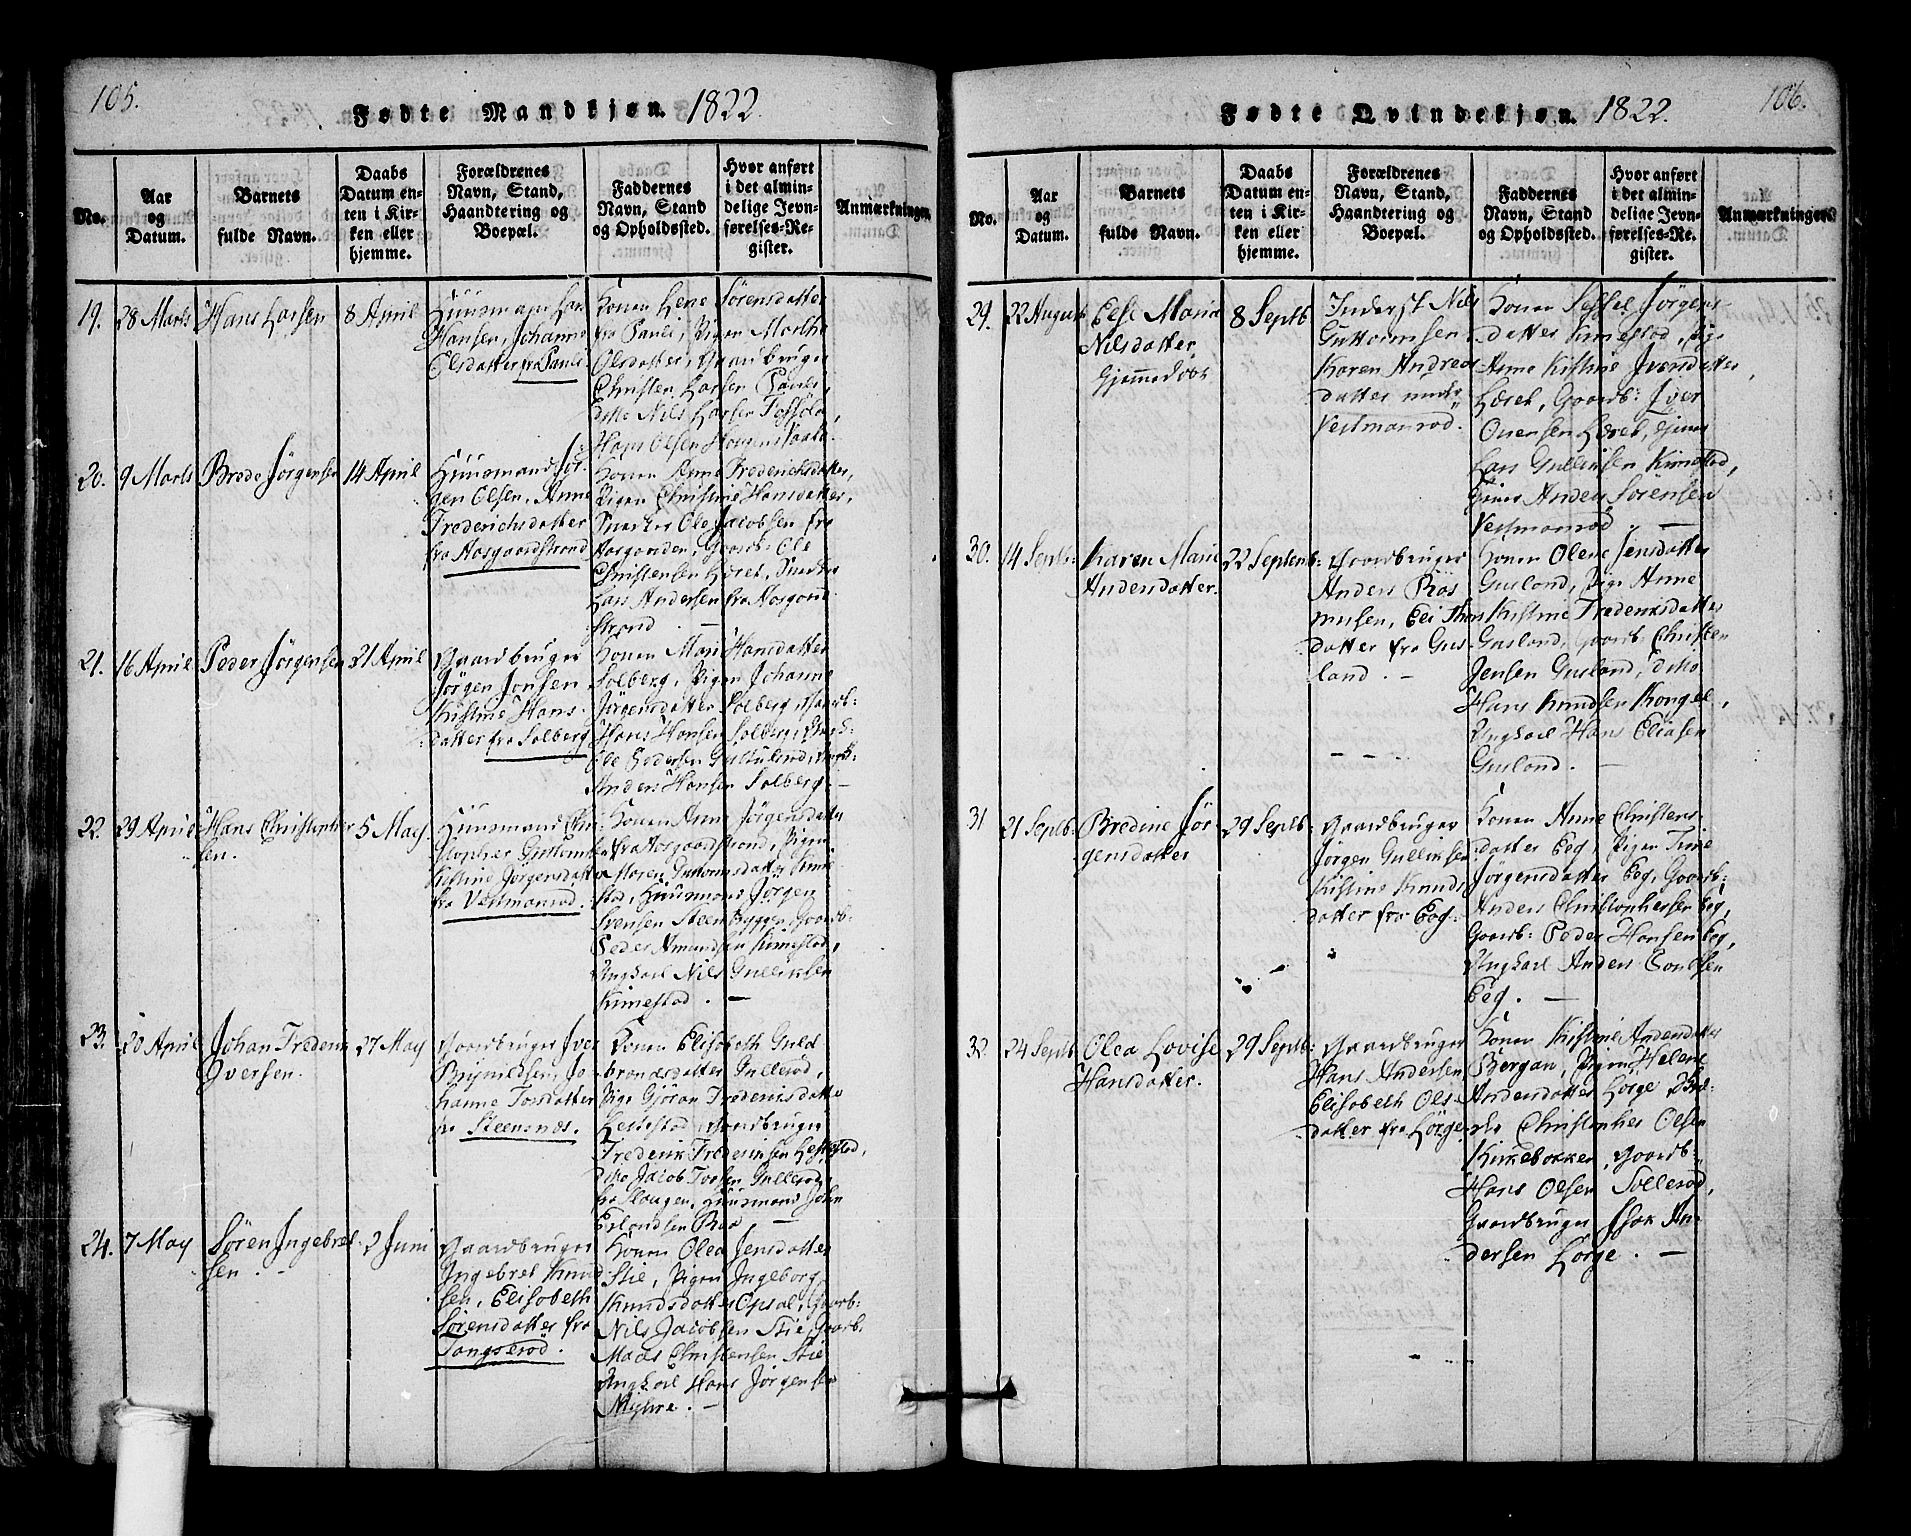 105.
Fødte Mandkjøn. 1822.
No.
Aar
og
Datum.
Barnets
fulde Navn.
Daabs
Datum en-
ten i Kir-
ken eller
hjemme.
Forældrenes
Navn, Stand,
Haandtering og
Boepæl.
Faddernes
Navn, Stand
og Opholdssted.
Hvor anført
i det almin-
delige Jevn-
førelses-Re-
gister.
Anmærkninger.
19.
28 Marts
Hans Larsen
8 April
Huusmand Lars
Hansen, Johanne
Olsdatter fra Pauli
Konen Lene Sørensdatter
fra Pauli, Pigen Marthe
Olsdatter, Gaardbruger
Christen Larsen Pauli,
ditto Nils Larsen
Hans Olsen
20.
9 Marts
Brede Jørgensen
14 April
Huusmand Jør-
gen Olsen, Anne
Frederichsdatter
fra Aasgaardstrand
Konen Anne Frederichsdatter,
Pigen Christine Hansdatter,
Snedker Ole Jacobsen fra
Aasgaarden, Gaardb: Ole
Christensen Læret, Snedker
Lars Andersen fra Aasgaard
strand. —
21.
16 April
Peder Jørgensen
21 April
Gaardbruger
Jørgen Jonsen
Kistine Hans-
datter fra Solberg
Konen Mari Hansdatter
Solberg, Pigen Johanne
Jørgensdatter Solberg, Gaardb:
Hans Hansen Solberg,
Ole Pedersen
Anders Hansen Solberg. —
22.
29 April
Hans Christopher
sen.
5 May
Huusmand Chri-
stopher Guttormsen
Kistine Jørgensdatter
fra Vestmanrød.
Konen Anne Jørgensdatter
fra Aasgaardstrand, Pigen
Maren Guttormsdatter Kime
stad, Huusmand Jørgen
Svensen Steenbyggen, Gaardb:
Peder Amundsen Kimestad,
Ungkarl Nils Gulliksen
Kimestad. —
23.
20 April
Johan Frederik
Iversen.
27 May
Gaardbruger Iver
Brynildsen, Jo-
hanne Torsdatter
fra Steensnæs.
Konen Elisabeth Guld
brandsdatter Gullerød,
Pige Gjøran Frederiksdatter
Lessestad, Gaardbruger
Frederik Frederiksen
ditto Jacob Torsen Gullerød
fra Slaugen, Huusmand John
Erlandsen Røe —
24.
7 May
Søren Ingebret
sen. —
2 Juni
Gaardbruger
Ingebret Knud
sen, Elisabeth
Sørensdatter fra
Tangserød.
Konen Olea Jensdatter
Stie, Pigen Ingeborg
Knudsdatter Opsal, Gaardb:
Nils Jacobsen Stie, Gaardb.
Mads Christensen Stie
Ungkarl Hans Jørgensen
Myhre. —
106.
Fødte Qvindekjøn. 1822.
No.
Aar
og
Datum.
Barnets
fulde Navn.
Daabs
Datum en-
ten i Kir-
ken eller
hjemme.
Forældrenes
Navn, Stand,
Haandtering og
Boepæl.
Faddernes
Navn, Stand
og Opholdssted.
Hvor anført
i det almin-
delige Jevn-
førelses-Re-
gister.
Anmærkninger.
29.
22 August
Else Maria
Nilsdatter
Hjemmedøbt
8 Septb
Inderst Nils
Guttormsen
Karen Andreas
datter under
Vestmanrød.
Konen Sessel Jørgens-
datter Kimestad, Pige
Anne Kistine Iversdatter,
Læret, Gaardb: Iver
Læret,
Lars Gulliksen Kimestad,
Anders Sørensen
Vestmanrød. —
30.
14 Septb:
Karen Marie
Andersdatter.
22 Septemb:
Gaardbruger
Anders Ras
musen, Eli Thors
datter fra Gus-
land. —
Konen Olene Jensdatter
Gusland, Pige Anne
Kistine Frederiksdatter
Gusland, Gaardb: Christen
Jensen Gusland, ditto
Hans Knudsen Kongel,
Ungkarl Hans Eliasen
Gusland. —
31
21 Septb:
Bredine Jør
gensdatter
29 Septb:
Gaardbruger
Jørgen Gulliksen
Kistine Knuds
datter fra Eeg.
Konen Anne Christens
datter Eeg, Pigen Trine
Jørgensdatter Eeg, Gaardb:
Anders Christophersen Eeg,
Gaardb: Peder Hansen Eeg,
Ungkarl Anders
Eeg. —
32.
24 Septb
Olea Lovise
Hansdatter.
29 Septb:
Gaardbruger
Hans Andersen
Elisabeth Ols-
datter fra Lørge
Konen Kistine Andersdatter
Bergan, Pigen Helene
Andersdatter Lørge
Christopher Olsen
Kirkebakken, Gaardb:
Hans Olsen Sollerød,
Gaardbruger Isak An-
dersen Lørge. —